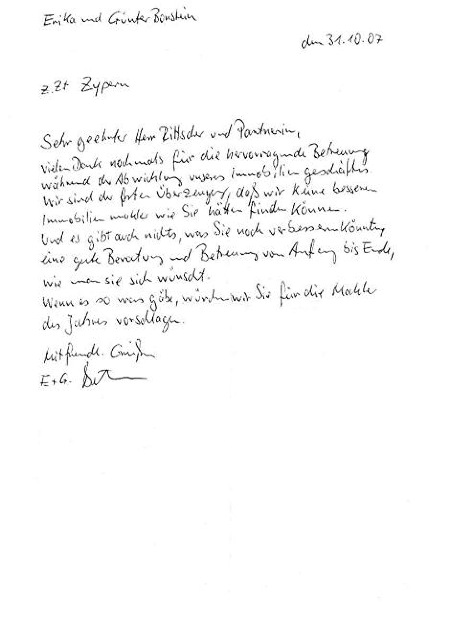 Erika und Günter Bonstein
den 31.10.07
z.Zt Zypern
Sehr geehrter Herr und Partnerin,
vielen Dank nochmals für die hervorragende Betreuung
während der Abwicklung unseres Immobiliengeschäftes
Wir sind der festen Überzeugung, daß wir keine besseren
Immobilienmakler wie Sie hätten finden können.
Und es gibt auch nichts, was Sie noch verbessern könnten,
eine gute Beratung und Betreuung von Anfang bis Ende,
wie man sie sich wünscht.
Wenn es so was gäbe, würden wir Sie für die Makler
des Jahres vorschlagen.
Mit freundl. Grüßen
E+G.